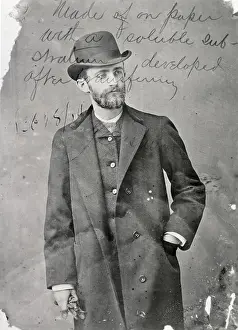 Made of on paper
with a soluble sub-
stratum developed
after